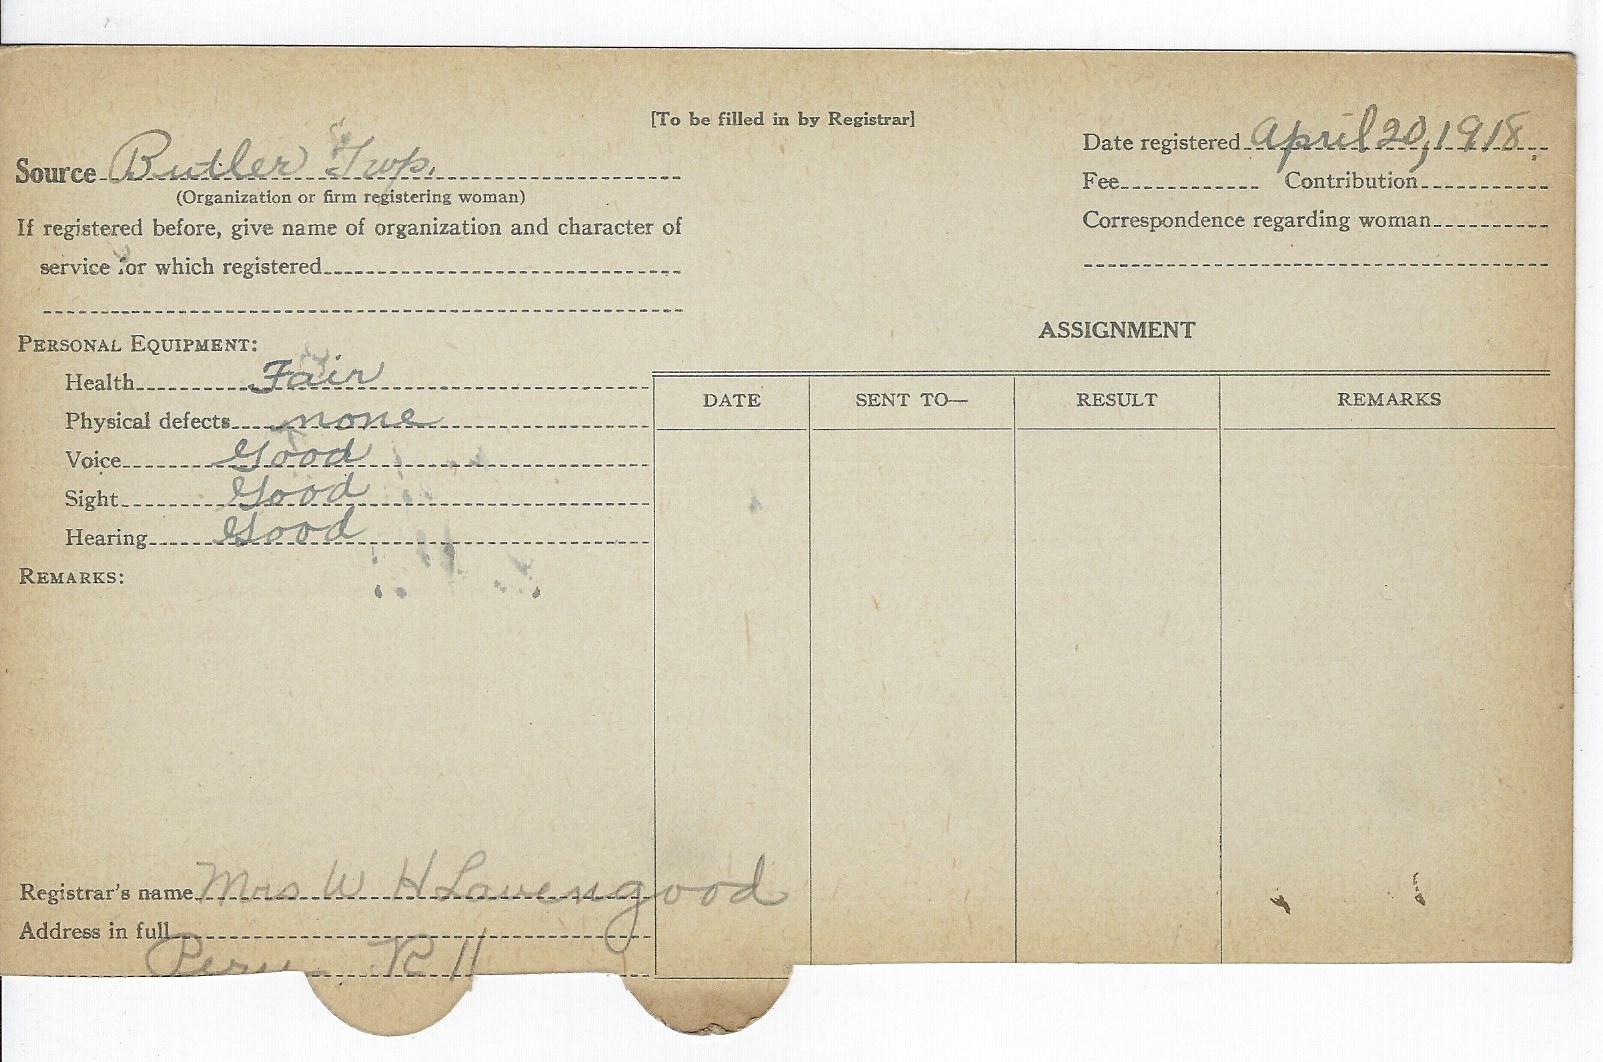 [To be filled in by Registrar]
Source Butler Twp.
(Organization or firm registering woman)
If registered before, give name of organization and character of
service for which registered
Date registered April 20, 1918.
Fee Contribution
Correspondence regarding woman
PERSONAL EQUIPMENT:
Health Fair
Physical defects none
Voice Good
Sight Good
Hearing Good
REMARKS:
ASSIGNMENT
DATE SENT TO— RESULT REMARKS
Registrar's name Mrs W H Lavengood
Address in full
Peru R 11